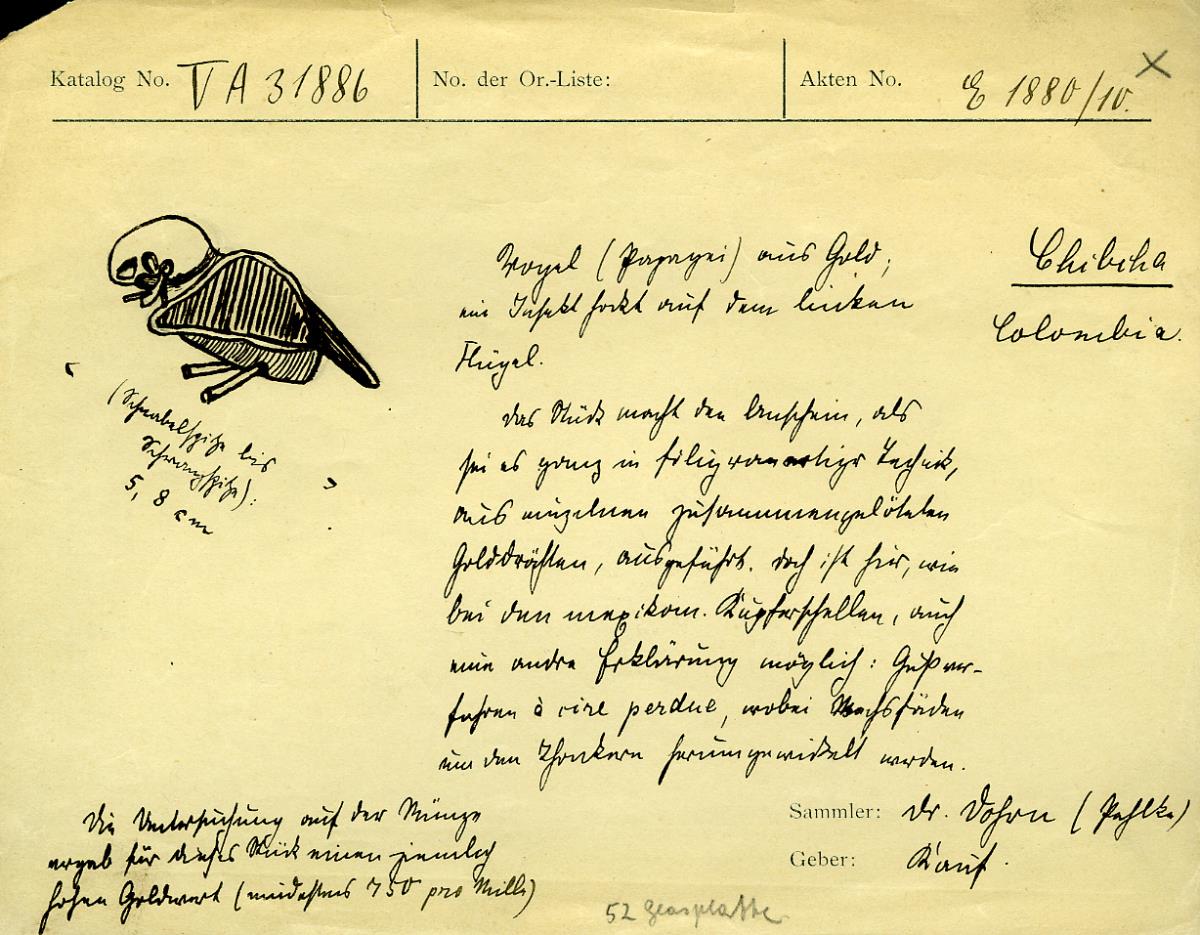 Katalog No. V A 31886
No. der Or.-Liste:
Akten No. E 1880/10.
X
Chibcha
Colombia.
Vogel (Papagei) aus Gold;
ein Insekt hockt auf dem linken
Flügel.
Das Stück macht den Anschein, als
sei es ganz in filigranartiger Technik,
aus einzelnen zusammengelöteten
Golddrähten, ausgeführt. Doch ist hier, wie
bei den mexikan. Kupferschellen, auch
eine andre Erklärung möglich: Gußver-
fahren à cire perdue, wobei Wachsfäden
um den Thonkern herumgewickelt werden.
(Schnabelspitze bis
Schwanzspitze):
5,8 cm
Die Untersuchung auf der Münze
ergab für dieses Stück einen ziemlich
hohen Goldwert (mindestens 750 pro Mille)
Sammler: Dr. Dohrn (Pehlke)
Geber: Kauf.
52 Glasplatte